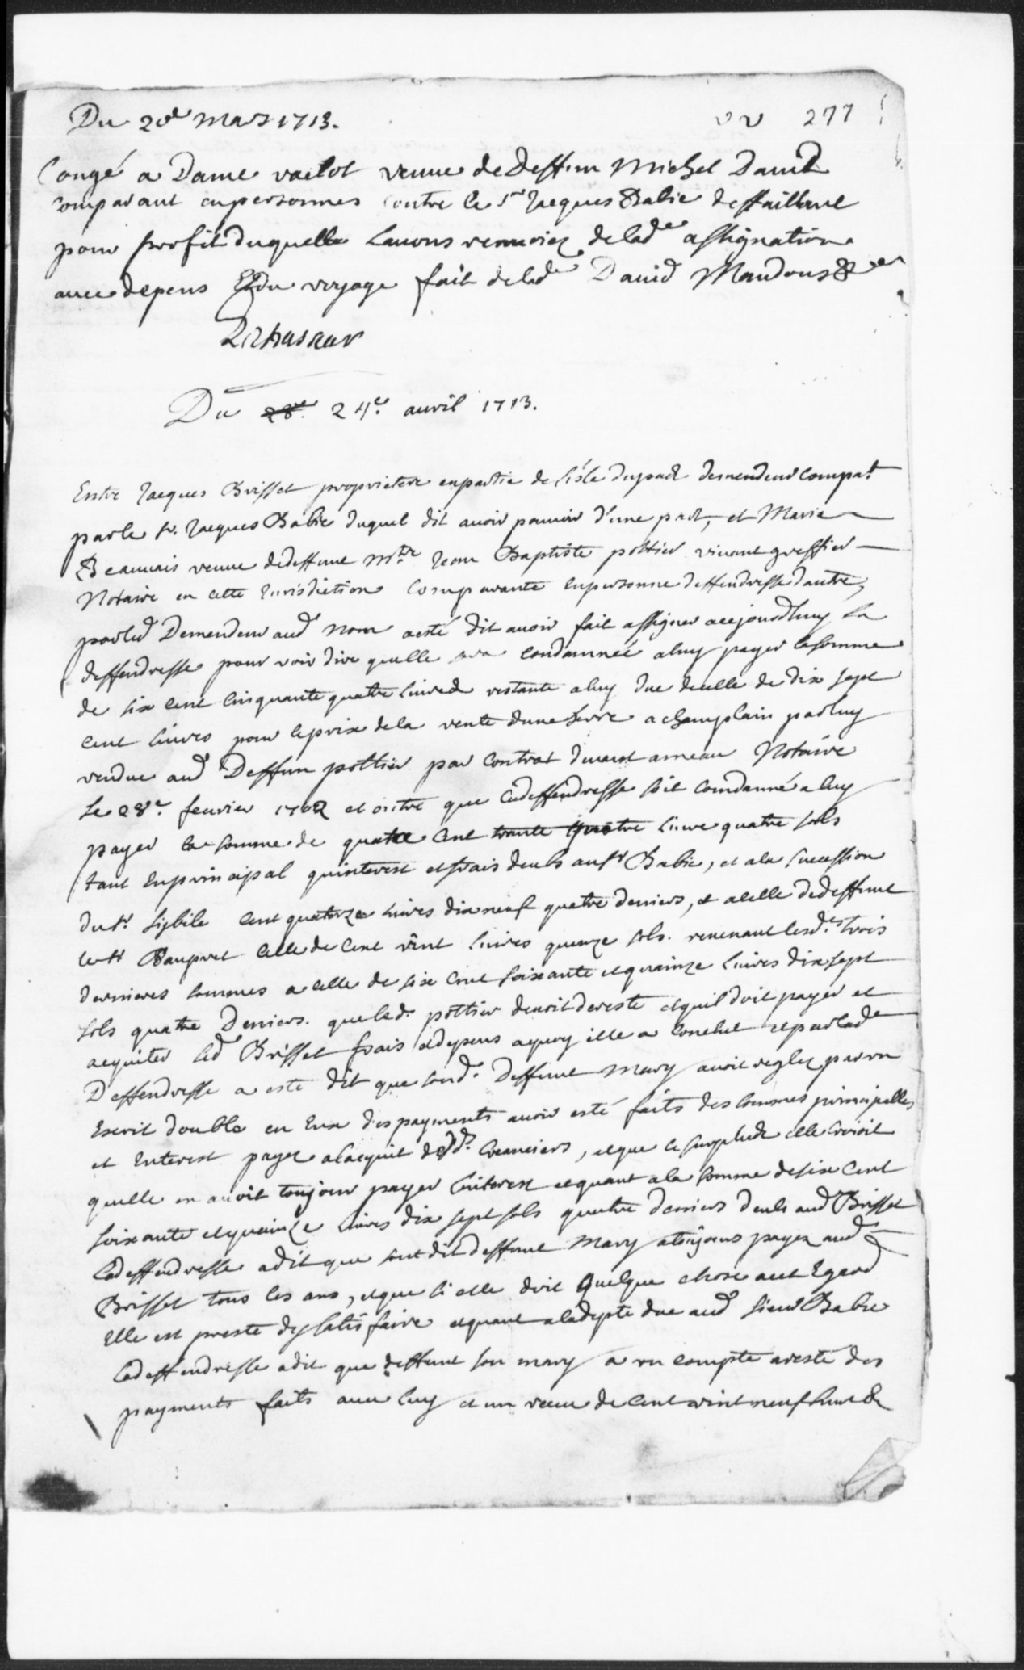 Du 20e mars 1713. 277
Congé a Dame vailot veuue de deffun Michel Dauid
comparant en personnes contre le Sr Jacques Babie deffaillant
pour profit duquelle Lauons renuoiez de lade assignation
auec depens Et du voyage fait de led Dauid Mandons &
Du 28e 24e auril 1713.
Entre Jacques Brisset proprietere en partie de l'isle dupads demendeur compat
par le Sr. Jacques Babie duquel dit auoir pouuoir d'une part, et Marie
Beauuais veuue de deffunt Mtre Jean Baptiste pottier viuant greffier
Notaire en cette Jurisdiction Comparante en personne deffendresse dautre,
par led Demendeur aud nom a esté dit auoir fait assigner a ce jourdhuy La
deffendresse pour voir dire quelle sera condamneé a luy payer la somme
de six cent Cinquante quatre liures restante a luy due de celle de dix sept
cent liures pour le prix de la vente dune terre a champlain par luy
vendue aud Deffun pottier par Contrat deuant ameau Notaire
Le 28e. feurier 1702 et outre que ladeffendresse soit Condamné a luy
payer la somme de quatre cent trante quatre liure quatre sols
tant en principal qu interest et frais deubs au Sr Babie, et a la sucession
du Sr. Sibile cent quatorze liures dix neuf quatre deniers, et a celle de deffunt
le Sr Baupret celle de Cent vint liures quenze sols. reuenant lesd.es trois
dernieres sommes a celle de six Cent soixante et quainze liures dix sept
sols quatre Deniers. que led. pottier deuoit de reste et quil doit payer et
acquiter led Brisset frais et depens a quoy ille a Conclut et par lade
Deffendresse a esté dit que sond. deffunt Mary auoit reglez par un
Escrit double en Eux des payments auoir esté faits des sommes principalles
et Interest payez a lacquit desd. Creanciers, et que le surplus elle croioit
quelle en auoit toujour payer linterest et quant a la somme de six Cent
soixante et quainze liures dix sept sols quatre deniers deubs aud Brisset
Ladeffendresse a dit que sont dit deffunt Mary a toujours payez aud
Brisset tous les ans, et que si elle doit quelque chose a cet Egard
Elle est preste dy satisfaire et quant a la depte due aud sieur Babie
Ladeffendresse a dit que deffunt son mary a un compte aresté des
payments faits auec luy et un receu de cent vint neuf liures &